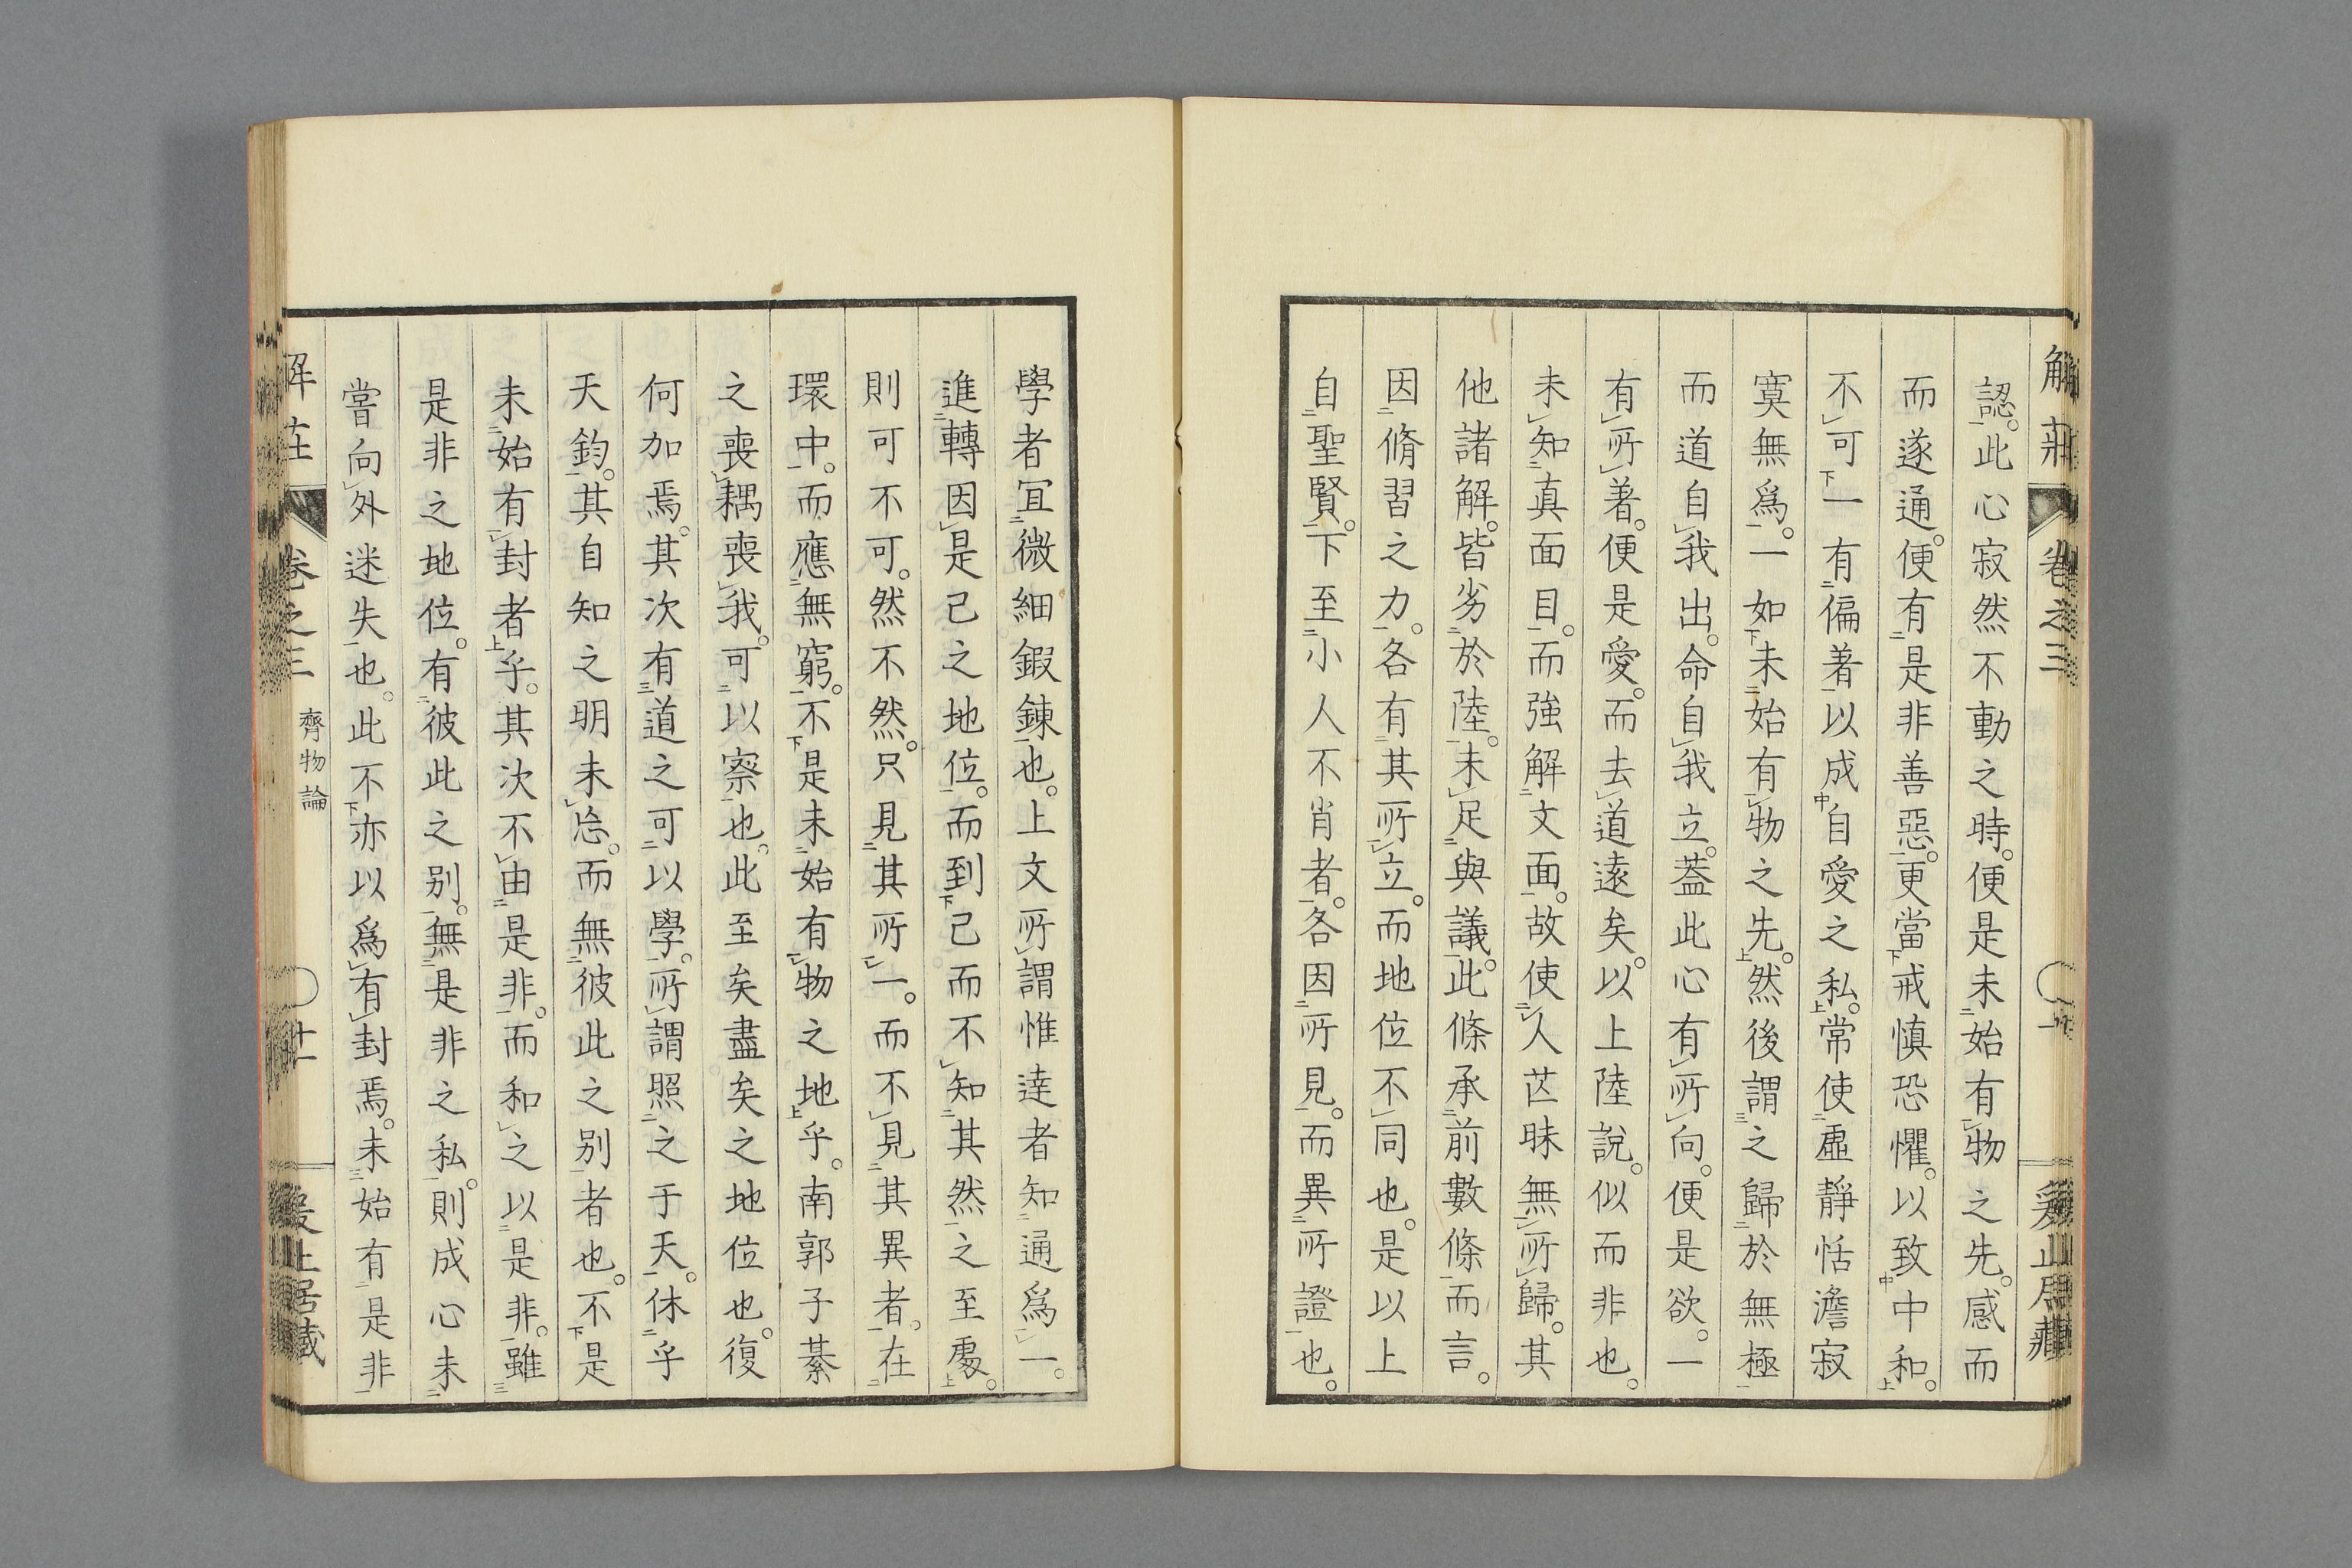 解莊 卷之三
認。此心寂然不動之時。便是未始有物之先。感而
而遂通。便有是非善惡。更當戒慎恐懼。以致中和。
不可一有偏著以成自愛之私。常使虛靜恬澹寂
寞無爲。一如未始有物之先。然後謂之歸於無極
而道自我出。命自我立。蓋此心有所向。便是欲。一
有所著。便是愛。而去道遠矣。以上陸說。似而非也。
未知真面目。而強解文面。故使人芒昧無所歸。其
他諸解。皆劣於陸。未足與議。此條承前數條而言。
因脩習之力。各有其所立。而地位不同也。是以上
自聖賢。下至小人不肖者。各因所見。而異所證也。
學者宜微細鍜鍊也。上文所謂惟達者知通爲一。
進轉因是己之地位。而到己而不知其然之至處。
則可不可。然不然。只見其所一。而不見其異者。在
環中。而應無窮。不是未始有物之地乎。南郭子綦
之喪耦喪我。可以察也。此至矣盡矣之地位也。復
何加焉。其次有道之可以學。所謂照之于天。休乎
天鈞。其自知之明未忩。而無彼此之別者也。不是
未始有封者乎。其次不由是非。而和之以是非。雖
是非之地位。有彼此之別。無是非之私。則成心未
嘗向外迷失也。此不亦以爲有封焉。未始有是非
解莊 卷之三 齊物論 廿一